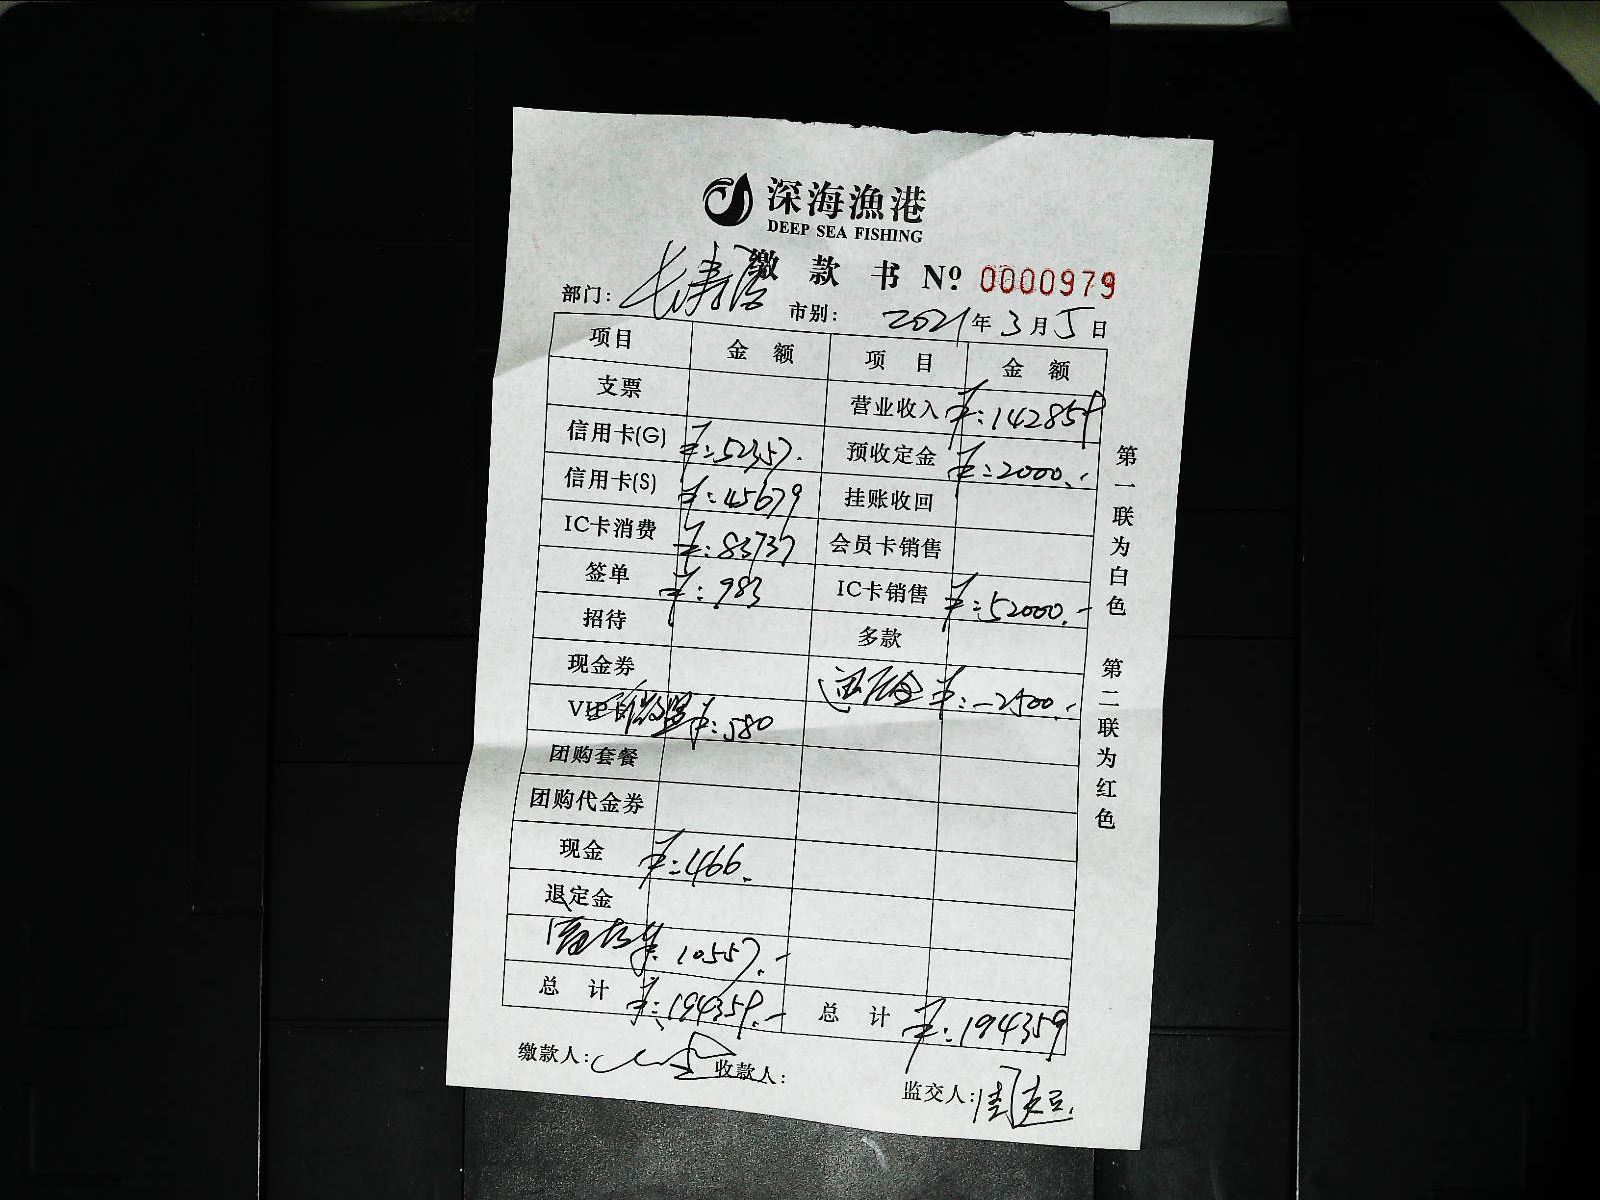 深海漁港
DEEP SEA FISHING
缴款书 Nº 0000979
部门: 长寿路 市别: 2021年3月5日
项目 金额 项目 金额
支票 营业收入 ¥:142859
信用卡(G) ¥:52357. 预收定金 ¥:2000.-
信用卡(S) ¥:45679 挂账收回
IC卡消费 ¥:83737 会员卡销售
签单 ¥:983 IC卡销售 ¥:52000.-
招待 多款
现金券 退定金 ¥:-2500.-
VIP卡 微盟 ¥:580
团购套餐
团购代金券
现金 ¥:466.
退定金
10557.-
总计 ¥:194359.- 总计 ¥:194359
缴款人: 收款人: 监交人:
第一联为白色 第二联为红色